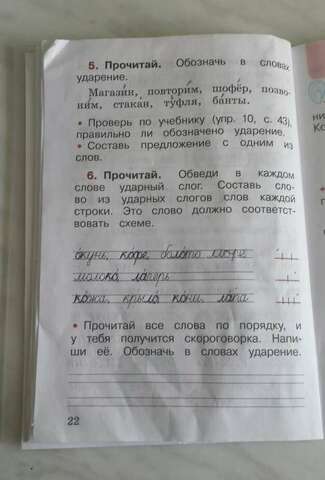 5. Прочитай. Обозначь в словах
ударение.
Магази́н, повтори́м, шофё́р, позво-
ни́м, стакан, ту́фля, ба́нты.
• Проверь по учебнику (упр. 10, с. 43),
правильно ли обозначено ударение.
• Составь предложение с одним из
слов.
6. Прочитай. Обведи в каждом
слове ударный слог. Составь сло-
во из ударных слогов слов каждой
строки. Это слово должно соответст-
вовать схеме.
о́кунь, ко́фе, боло́то
молоко́, ла́герь
ко́жа, крыло́, ко́ни, ла́па
• Прочитай все слова по порядку, и
у тебя получится скороговорка. Напи-
ши её. Обозначь в словах ударение.
22